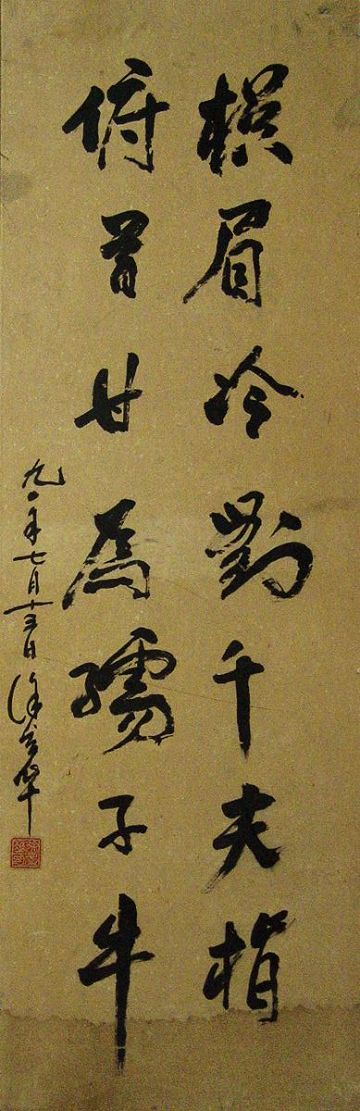 橫眉冷對千夫指
俯首甘為孺子牛
九一年七月十三日